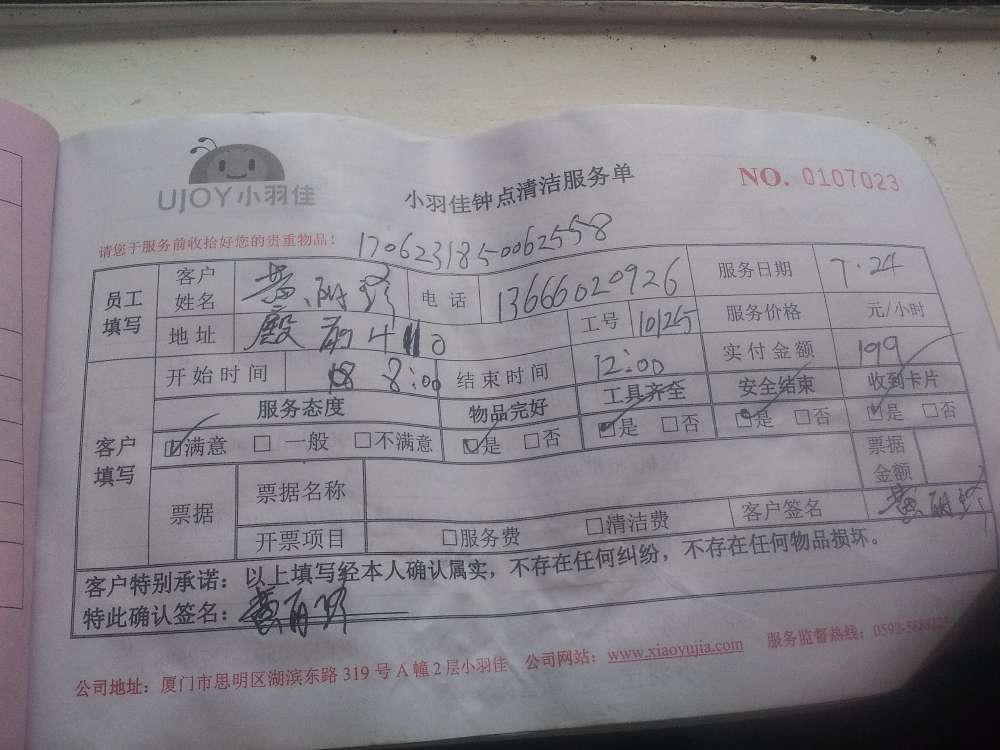 UJOY小羽佳
小羽佳钟点清洁服务单
NO. 0107023
请您于服务前收拾好您的贵重物品！
170623185-0062558
员工填写
客户姓名 黄丽珍 电话 13666020926 服务日期 7.24
地址 殿前410 工号 10125 服务价格 元/小时
客户填写
开始时间 8:00 结束时间 12:00 实付金额 199
服务态度 物品完好 工具齐全 安全结束 收到卡片
☑满意 □一般 □不满意 ☑是 □否 ☑是 □否 ☑是 □否 ☑是 □否
票据 票据名称 票据金额
开票项目 □服务费 □清洁费 客户签名 黄丽珍
客户特别承诺：以上填写经本人确认属实，不存在任何纠纷，不存在任何物品损坏。
特此确认签名：黄丽珍
公司地址：厦门市思明区湖滨东路 319 号 A 幢 2 层小羽佳 公司网站：www.xiaoyujia.com 服务监督热线：0592-